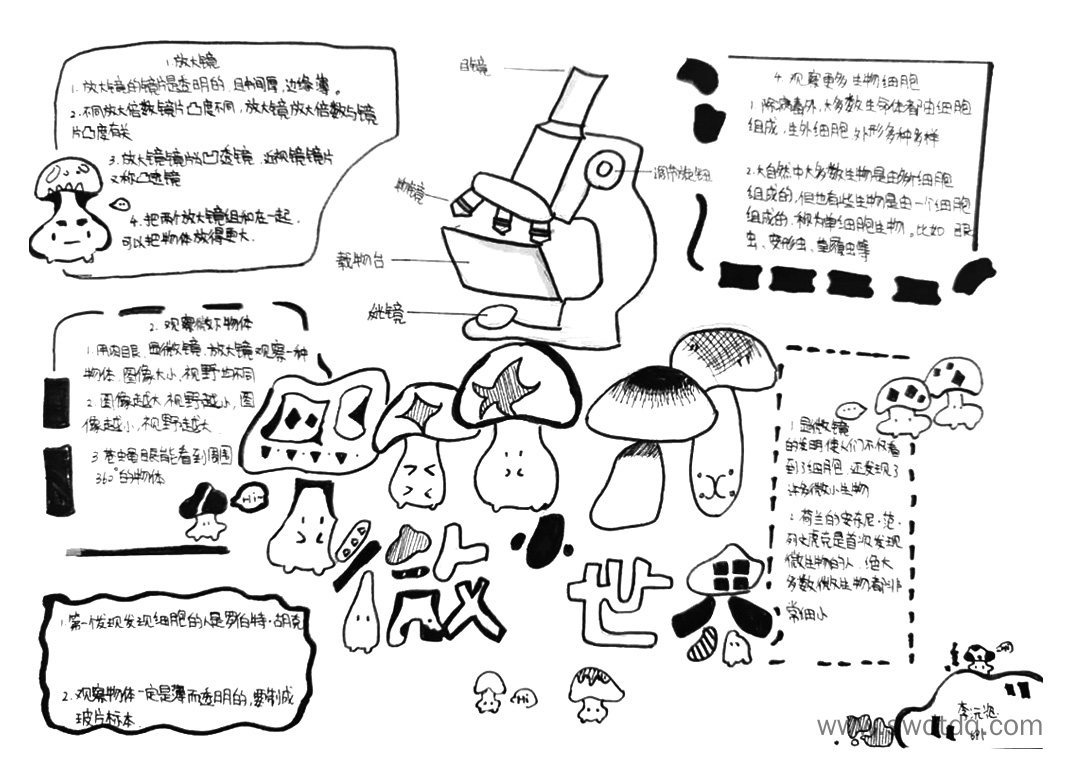 1.放大镜
1.放大镜的镜片是透明的,且中间厚,边缘薄。
2.不同放大倍数镜片凸度不同,放大镜放大倍数与镜
片凸度有关
3.放大镜镜片为凹透镜,近视镜镜片
又称凸透镜
4.把两个放大镜组和在一起,
可以把物体放得更大.
目镜
物镜
调节旋钮
载物台
反光镜
4.观察更多生物细胞
1.除病毒外,大多数生命体都由细胞
组成,生外细胞,外形多种多样
2.大自然中大多数生物是由多个细胞
组成的,但也有些生物是由一个细胞
组成的,称为单细胞生物。比如
虫、变形虫、草履虫等
2.观察微下物体
1.用肉眼、显微镜、放大镜观察一种
物体,图像大小、视野均不同
2.图像越大,视野越小,图
像越小,视野越大.
3.苍蝇眼能看到周围
360°的物体
Hi~
1.显微镜
的发明使人们不仅看
到了细胞,还发现了
许多微小生物
2.荷兰的安东尼·范·
列文虎克是首次发现
微生物的人,绝大
多数微生物都非
常细小
微 世 界
1.第一个发现发现细胞的人是罗伯特·胡克
2.观察物体一定是薄而透明的,要制成
玻片标本.
Hi
Hi
www.swotdq.com